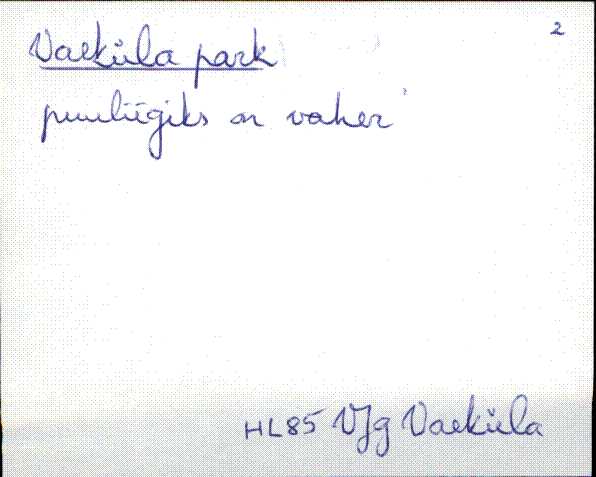 2
Vaeküla park
puuliigiks on vaher
HL85 VJg Vaeküla